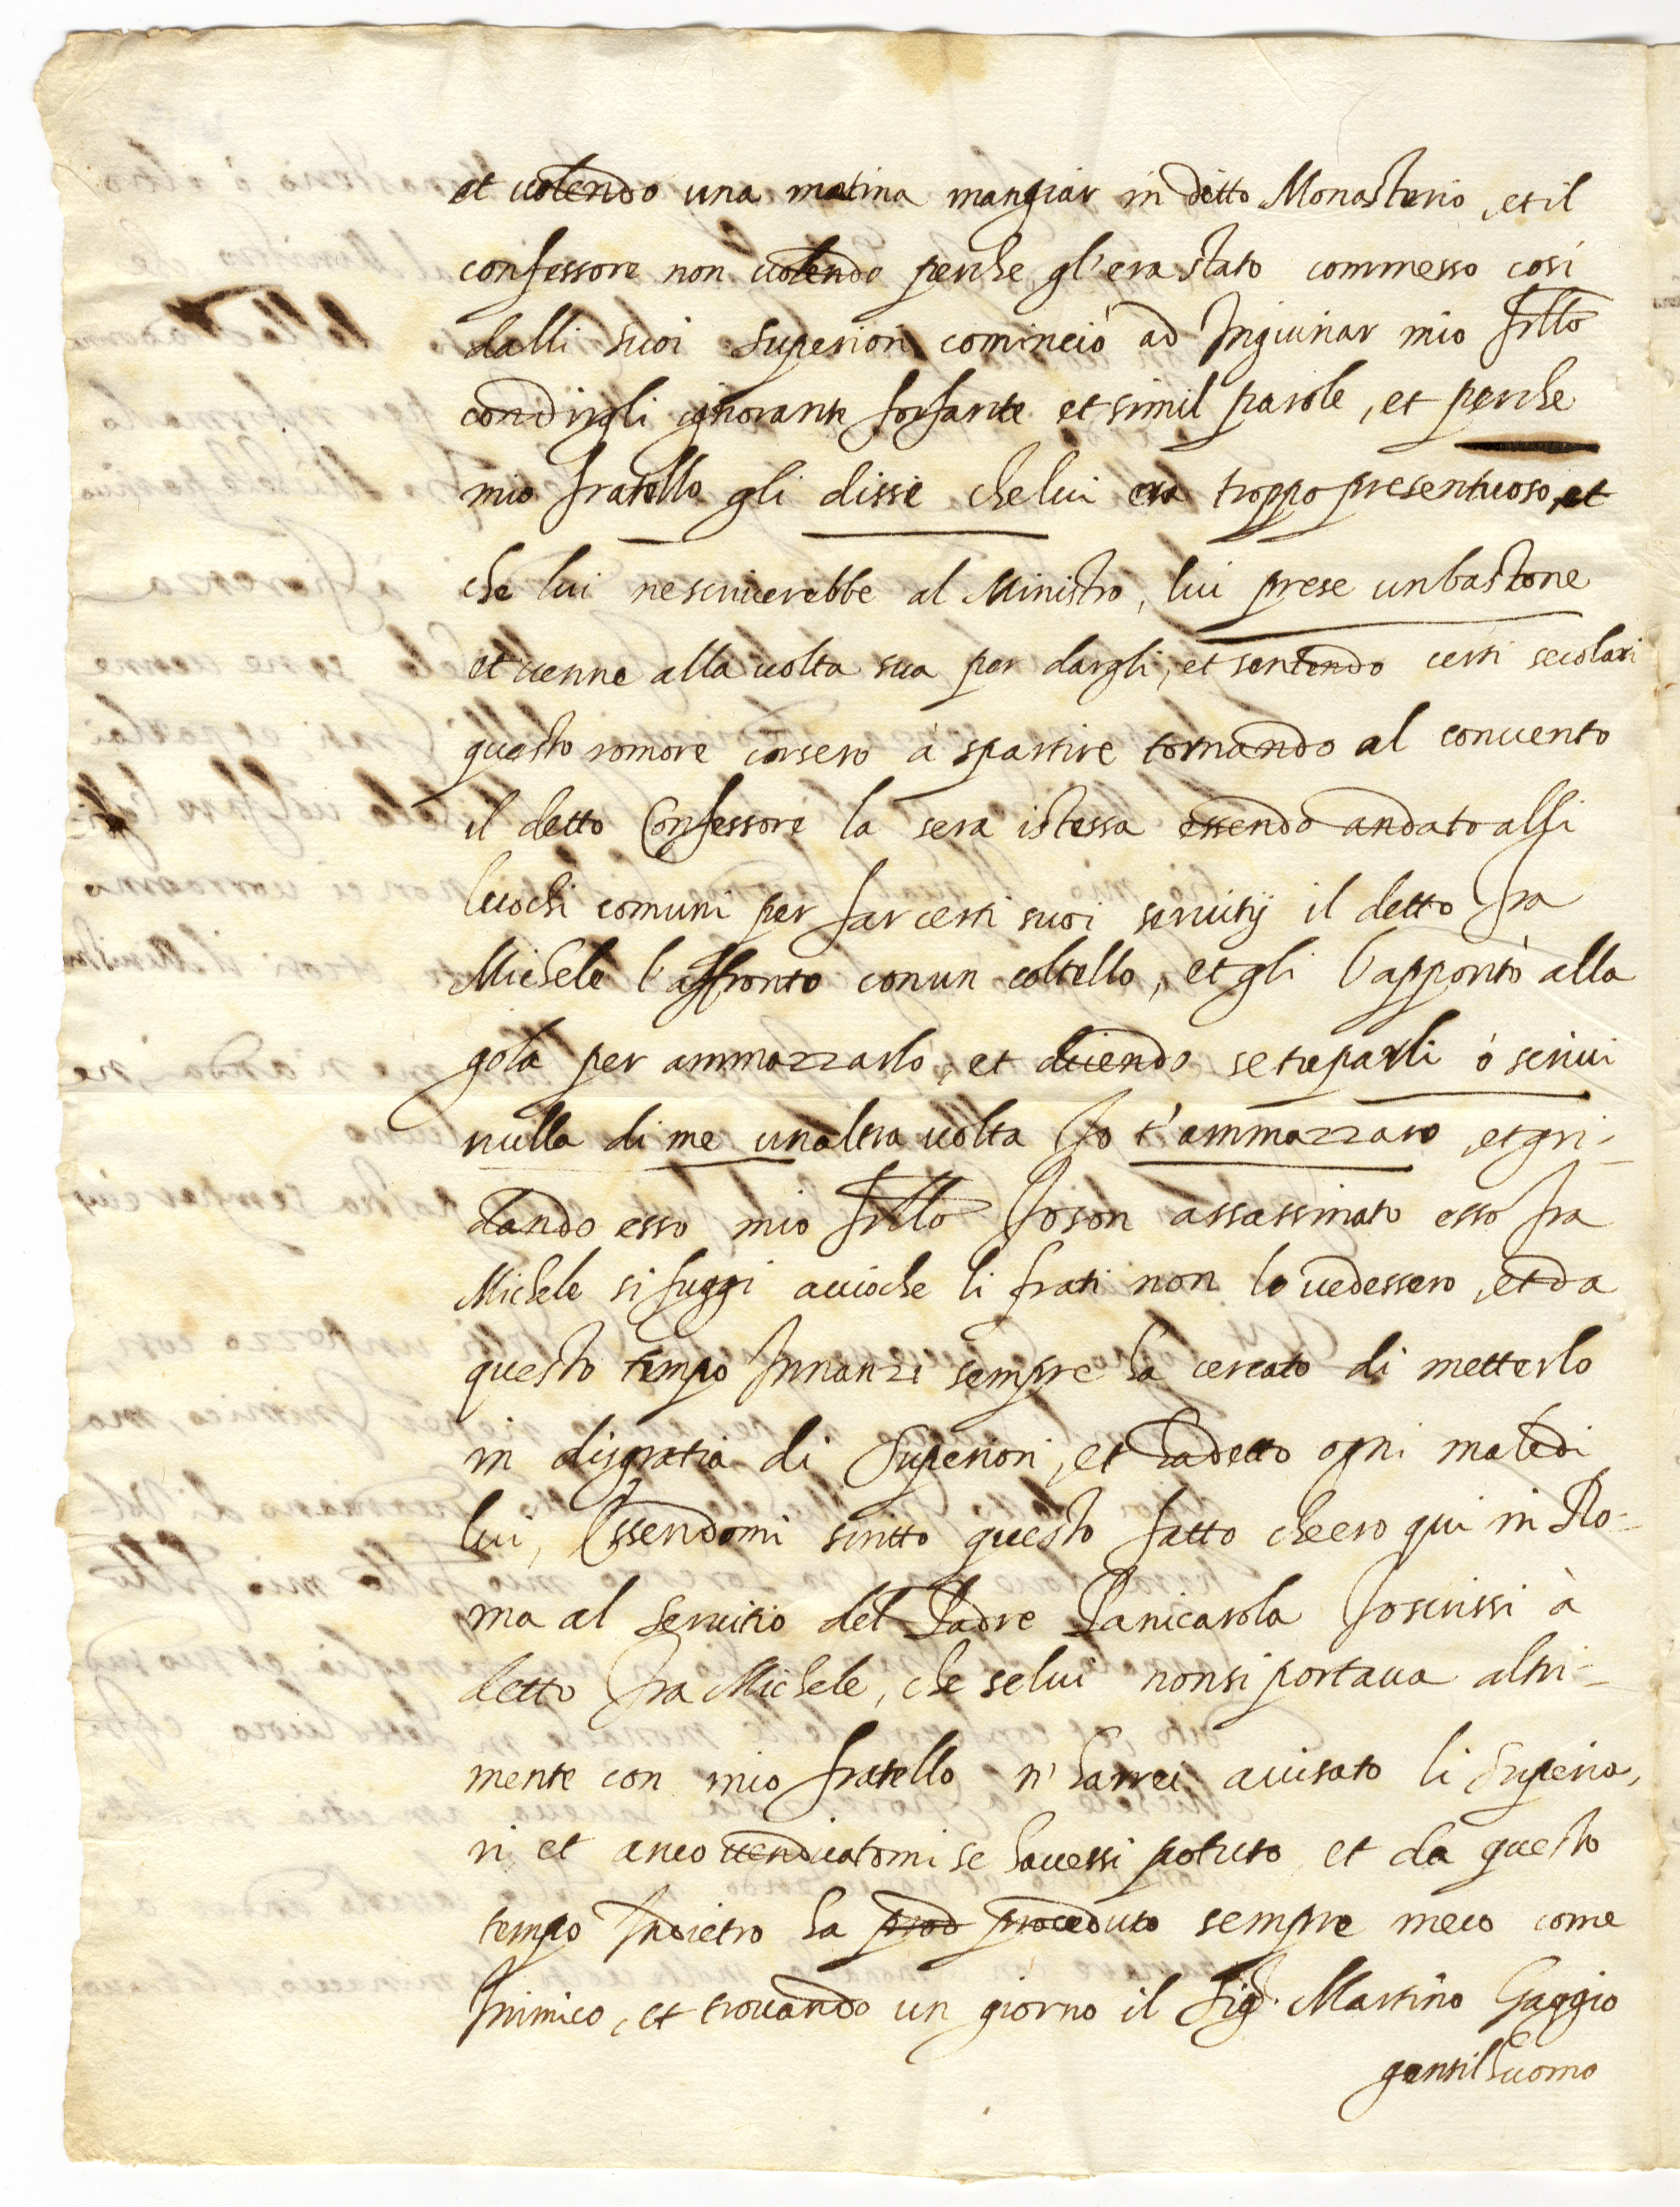 et uolendo una matina mangiar in ditto Monasterio, et il
confessore non uolendo perche gl'era stato commesso cosi
dalli suoi superiori cominciò ad Ingiuriar mio frllo
condirgli ignorante forfante et simil parole, et perche
mio fratello gli disse che lui era troppo presentuoso, et
che lui ne scriuerebbe al Ministro, lui prese un bastone
et uenne alla uolta sua per dargli, et sentendo certi secolari
questo romore corsero à spartire tornando al conuento
il detto Confessore la sera istessa essendo andato alli
luochi comuni per far certi suoi seruitij il detto fra
Michele l'affronto con un coltello, et gli l'apportò alla
gola per ammazzarlo, et dicendo se tu parli ò scriui
nulla di me unaltra uolta Io t'ammazzaro, et gri-
dando esso mio frllo Io son assassinato esso fra
Michele si fuggi accioche li frati non lo uedessero, et da
questo tempo Innanzi sempre ha cercato di metterlo
in disgratia di Superiori, et ha detto ogni male di
lui, Essendomi scritto questo fatto che ero qui in Ro-
ma al seruitio del Padre Panicarola Io scrissi à
detto fra Michele, che se lui non si portaua altri-
mente con mio fratello n'harrei auisato li superio,
ri et anco uendicatomi se hauessi potuto et da questo
tempo Indietro ha prod proceduto sempre meco come
Inimico, et trouando un giorno il Sig.r Martino Gaggio
gentilhuomo